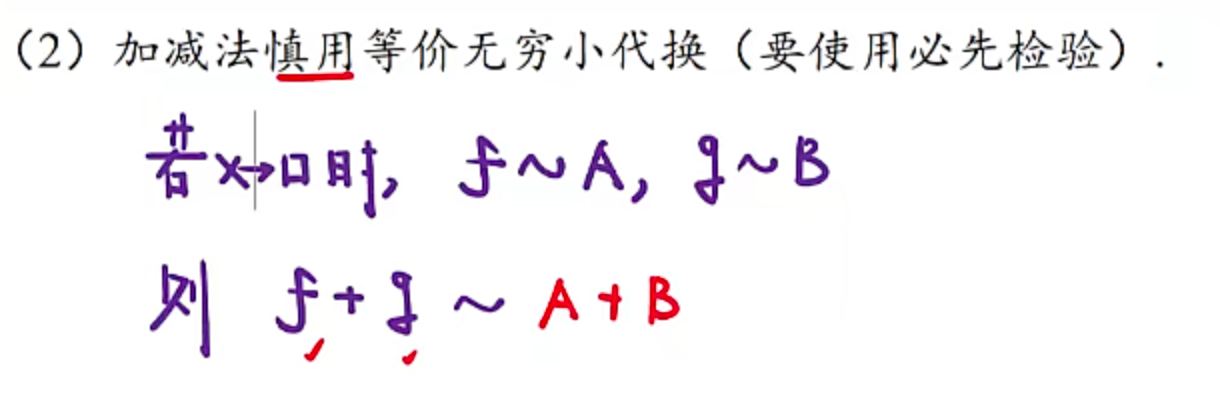 （2）加减法慎用等价无穷小代换（要使用必先检验）.
若x→口时, f~A, g~B
则 f+g ~ A+B